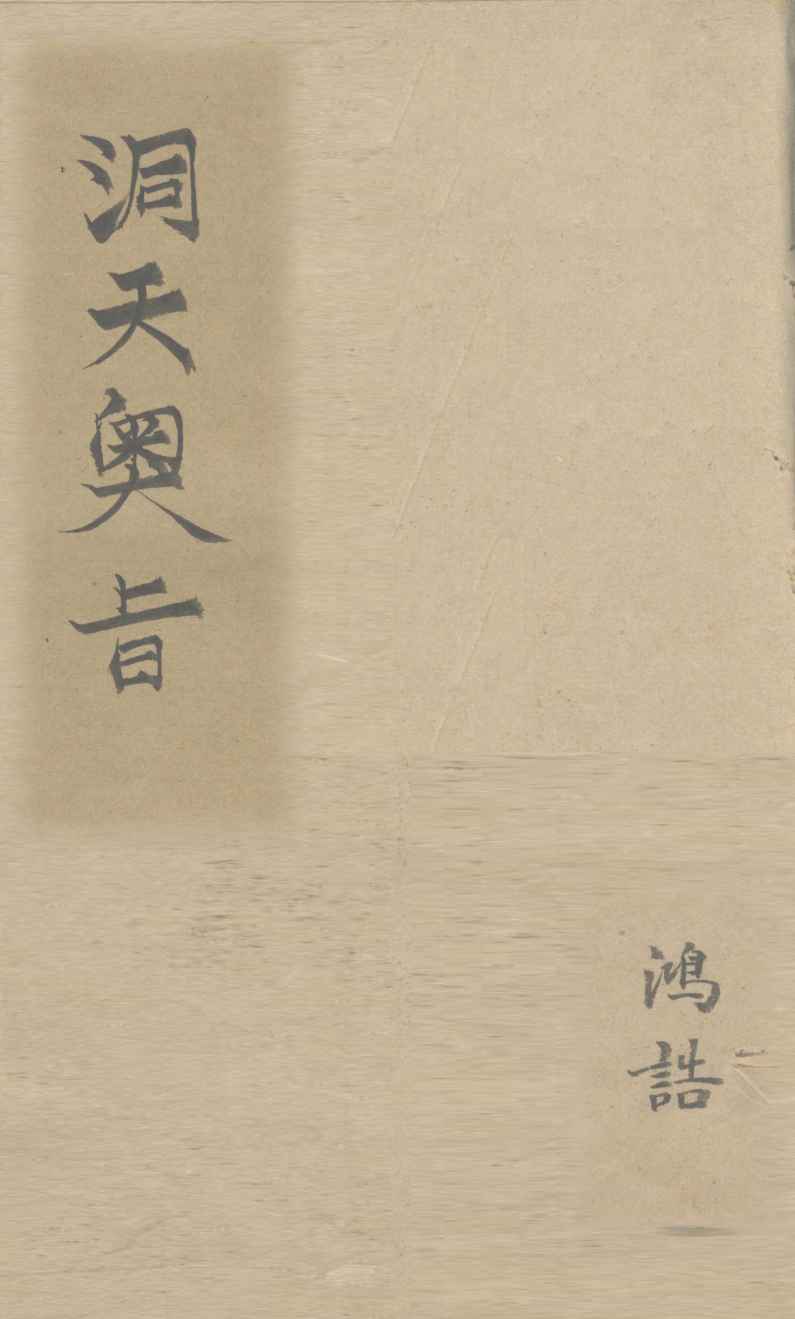 洞天奥旨
鴻誥